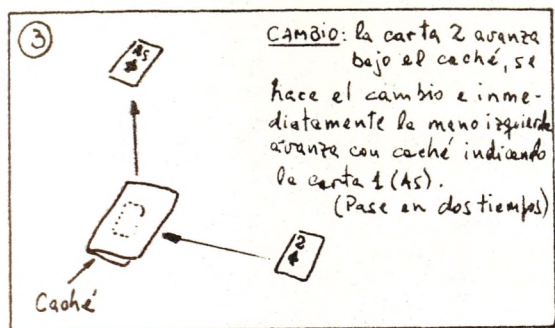 3
CAMBIO: la carta 2 avanza
bajo el caché, se
hace el cambio e inme-
diatamente la mano izquierda
avanza con caché indicando
la carta 1 (AS).
(Pase en dos tiempos)
AS
2
Caché